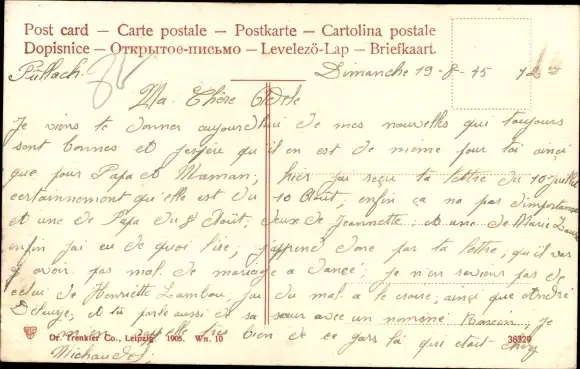 Post card – Carte postale – Postkarte – Cartolina postale
Dopisnice – Открытое-письмо – Levelező-Lap – Briefkaart.
Pullach. Dimanche 19-8-45
Ma Chère Odette
Je viens te donner aujourd'hui de mes nouvelles qui toujours
sont bonnes et j'espère qu'il en est de même pour toi ainsi
que pour Papa et Maman; hier j'ai reçu ta lettre du 10 juillet
certainement qu'elle est du 10 Août, enfin ça na pas d'importance
et une de Papa du 8 Août; deux de Jeannette; et une de Marie
enfin j'ai eu de quoi lire; j'apprend donc par ta lettre, qu'il vas
y avoir pas mal de mariage a; je n'en reviens pas de
celui de Henriette; j'ai du mal a le croire; ainsi que André
Deleuze; et tu parle aussi de sa soeur avec un nommé; je
m'en rappelle très bien de ce gars là qui était chez
Michaudel;
Dr. Trenkler Co., Leipzig. 1905. Wn. 10
38329